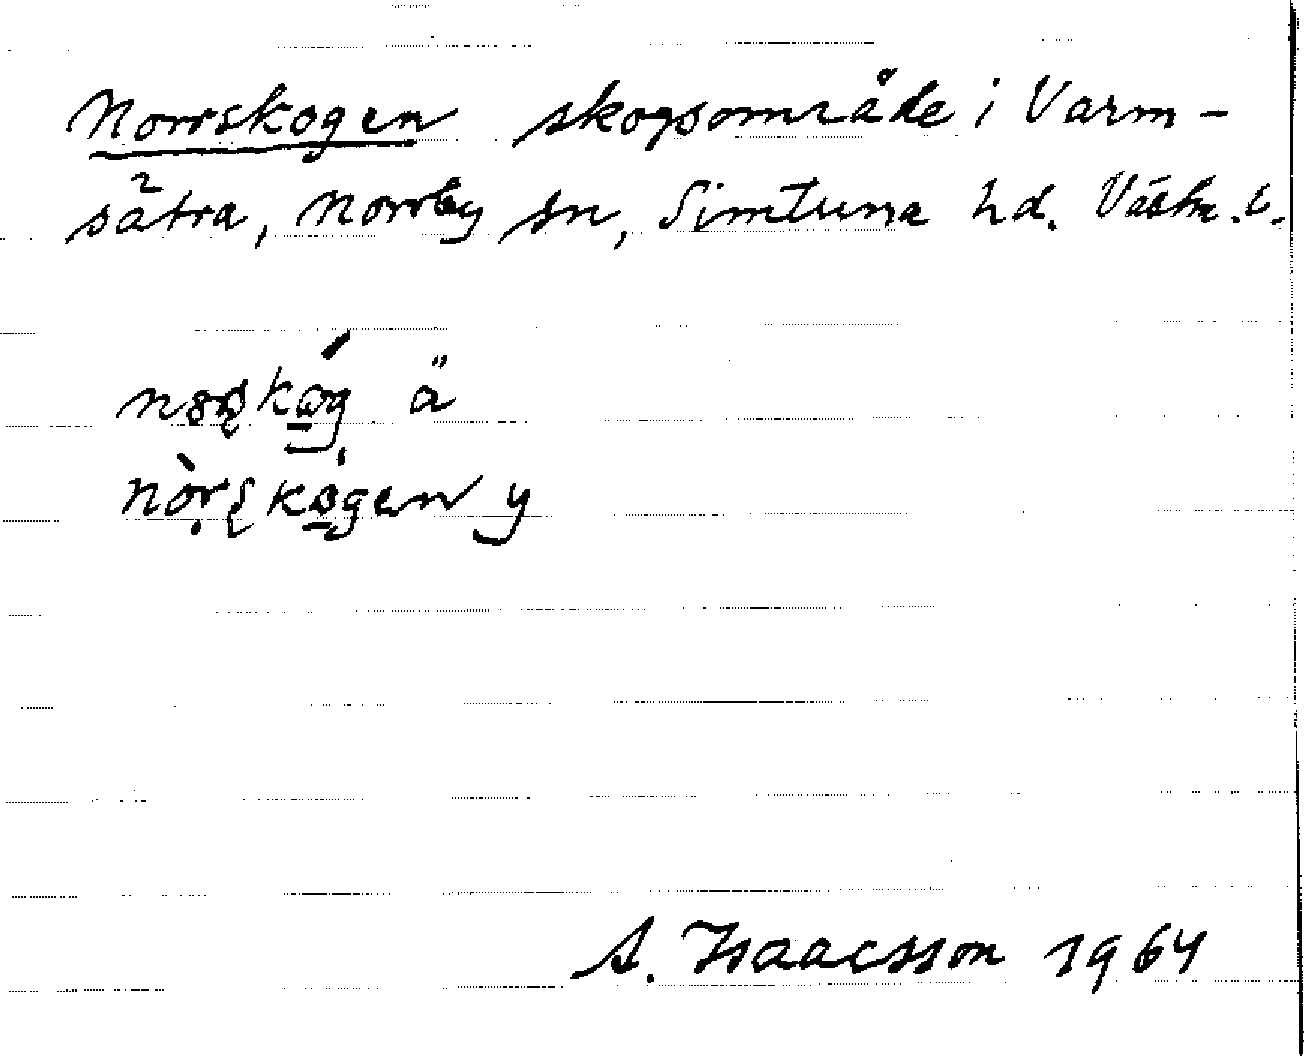 Norrskogen skogsområde i Varm-
sätra, Norrby sn, Simtuna hd. Västm. l.
ä
nòrskogen y
A. Isaacsson 1964